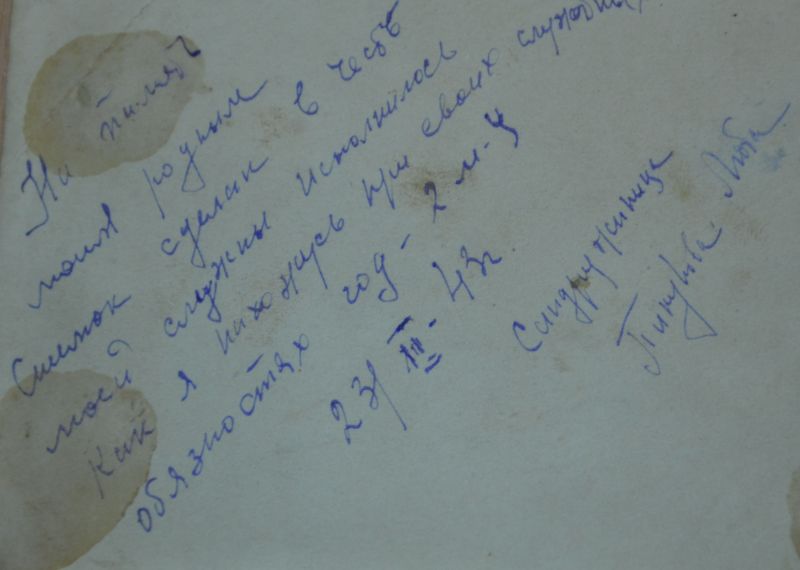 На память
моим родным
Снимок сделан в честь
моей службы исполнилось
как я нахожусь при своих служебных
обязностях год - 2 м-ц
23/III - 43 г
Сандружиница
Люба